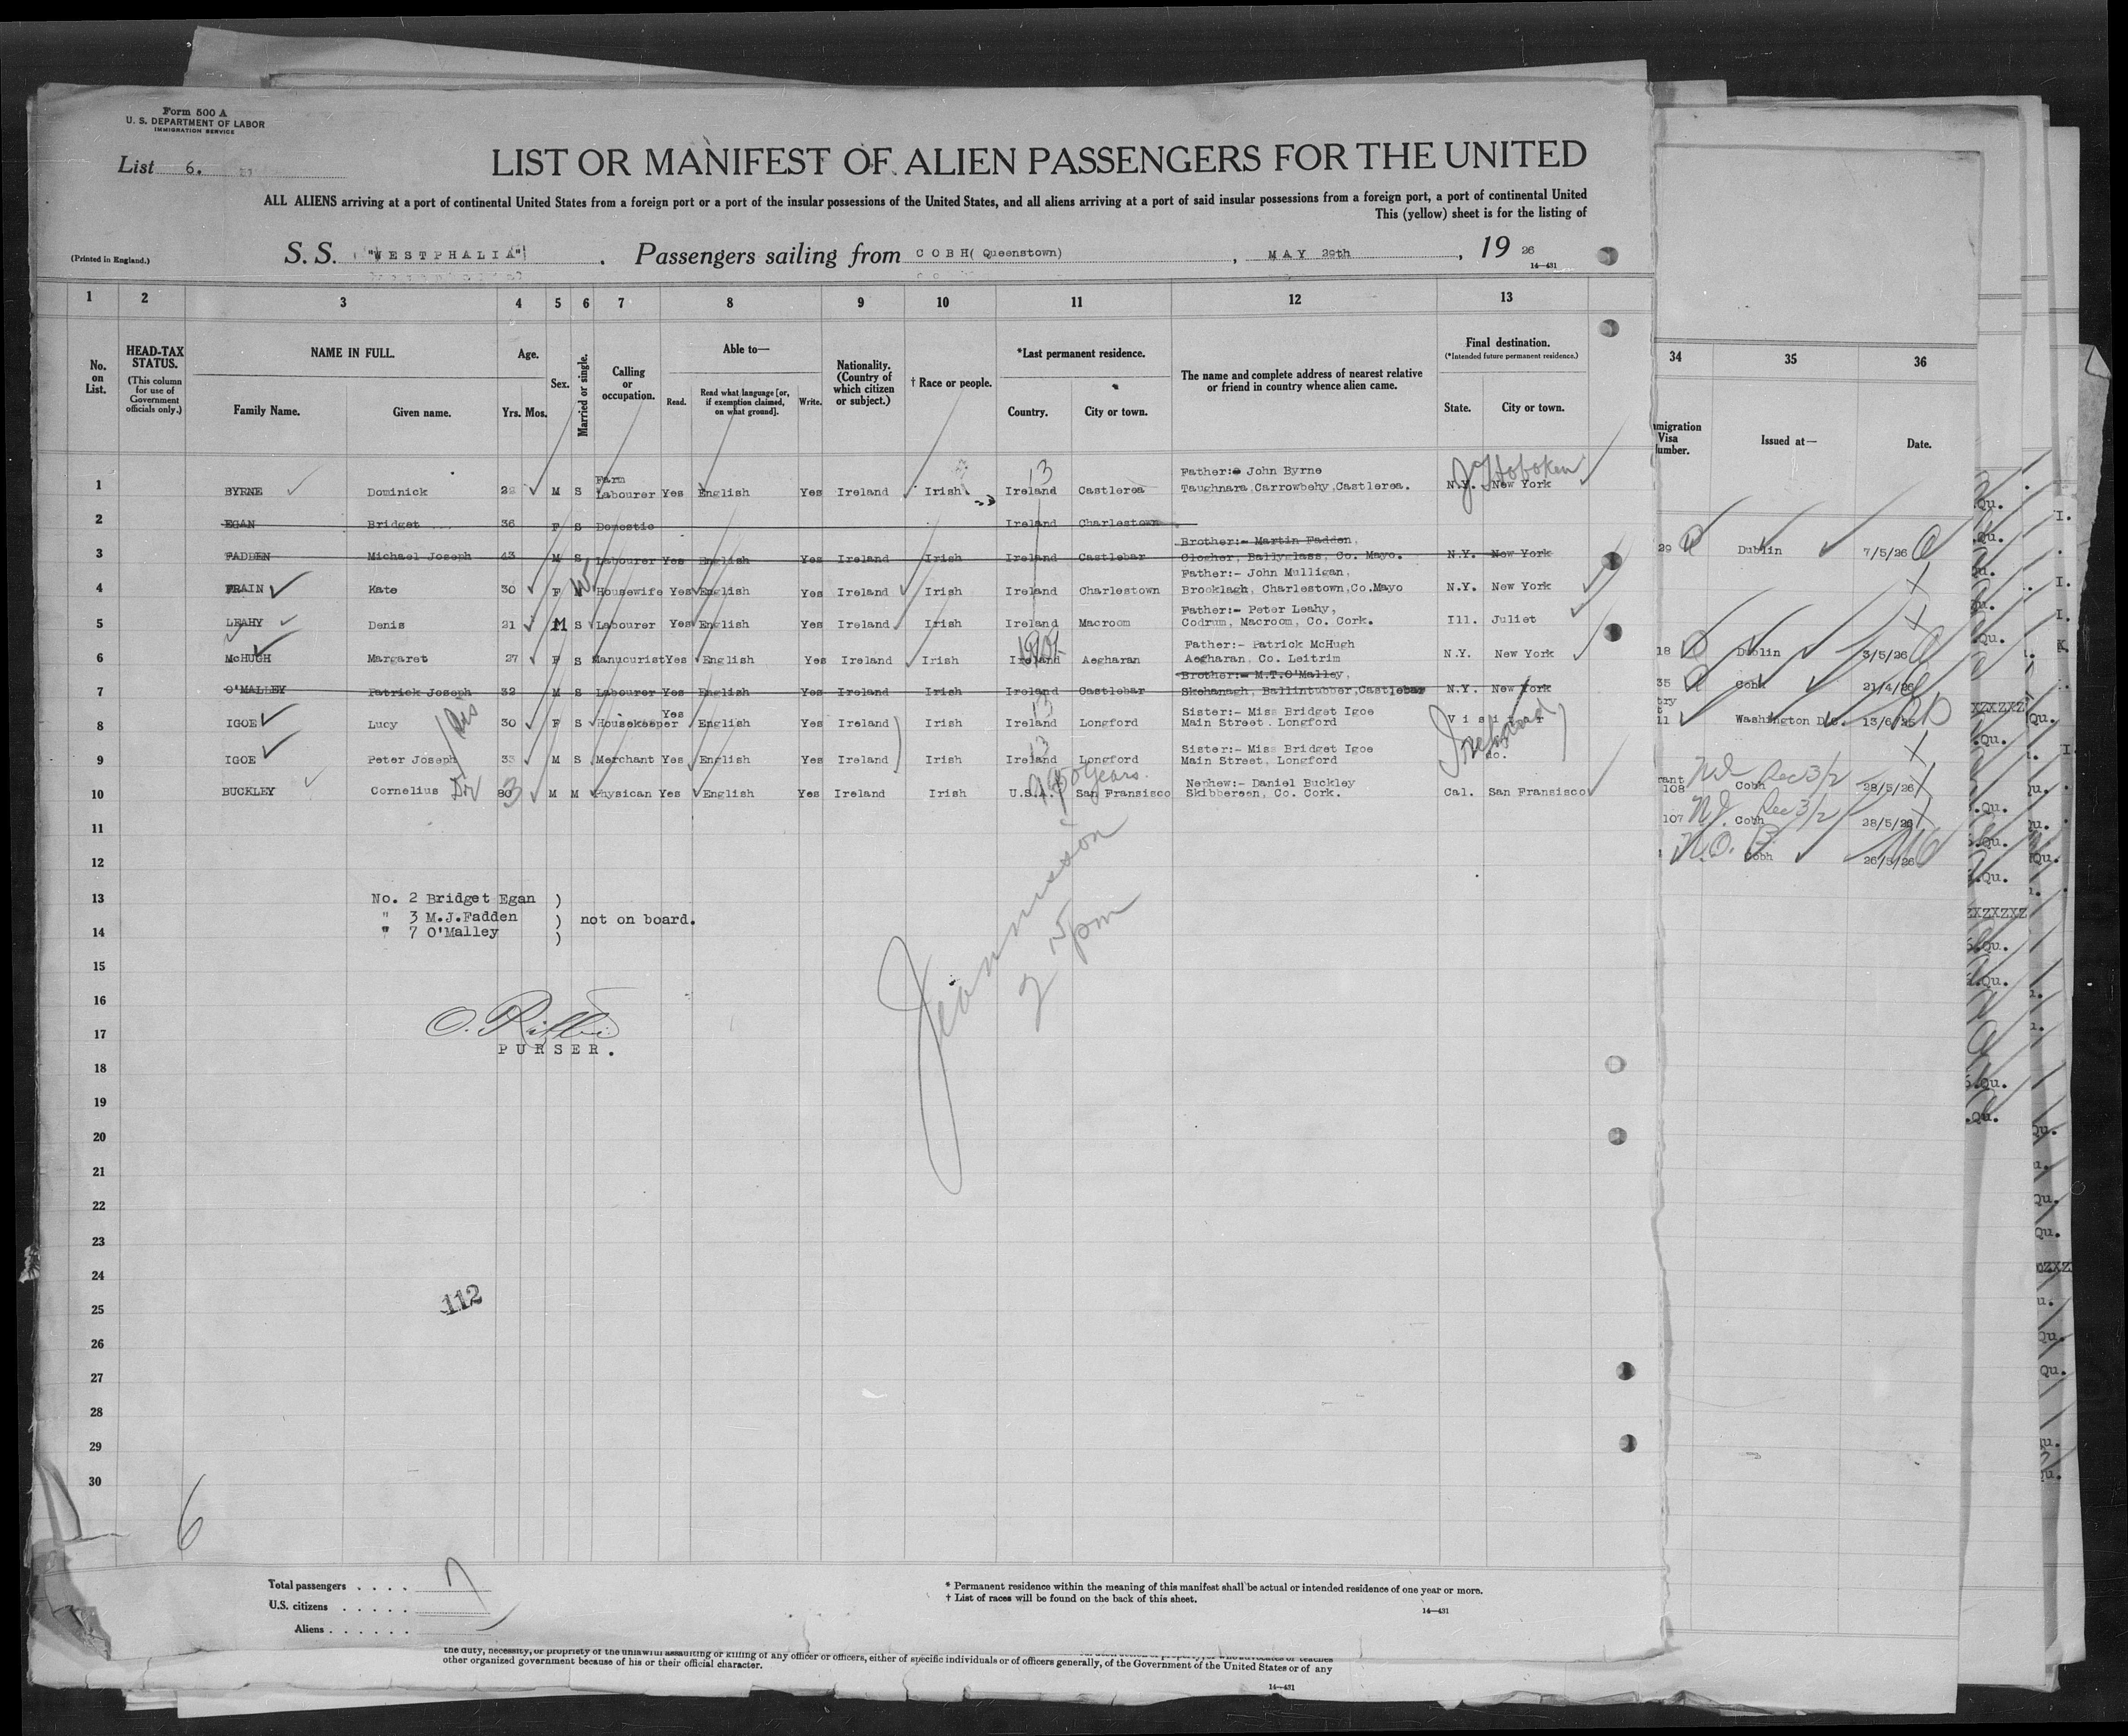 Form 500 A
U. S. DEPARTMENT OF LABOR
IMMIGRATION SERVICE
List 6.
LIST OR MANIFEST OF ALIEN PASSENGERS FOR THE UNITED
ALL ALIENS arriving at a port of continental United States from a foreign port or a port of the insular possessions of the United States, and all aliens arriving at a port of said insular possessions from a foreign port, a port of continental United
This (yellow) sheet is for the listing of
(Printed in England.)
S. S. "WESTPHALIA" . Passengers sailing from COBH( Queenstown) , MAY 29th , 19 26
14—431
1 2 3 4 5 6 7 8 9 10 11 12 13
34 35 36
No. on List.
HEAD-TAX STATUS.
(This column for use of Government officials only.)
NAME IN FULL.
Family Name. Given name.
Age.
Yrs. Mos.
Sex.
Married or single.
Calling or occupation.
Able to—
Read. Read what language [or, if exemption claimed, on what ground]. Write.
Nationality. (Country of which citizen or subject.)
† Race or people.
*Last permanent residence.
Country. City or town.
The name and complete address of nearest relative or friend in country whence alien came.
Final destination.
(*Intended future permanent residence.)
State. City or town.
Visa
Issued at—
Date.
1 BYRNE Dominick M S Farm Labourer Yes English Yes Ireland Irish Ireland Castlerea Father:- John Byrne
Taughnara,Carrowbehy,Castlerea. N.Y. New York
13 Hoboken
2 EGAN Bridget 36 F S Domestic Ireland Charlestown
3 FADDEN Michael Joseph 43 M S Labourer Yes English Yes Ireland Irish Ireland Castlebar Brother:- Martin Fadden,
Clogher, Ballyglass, Co. Mayo. N.Y. New York
4 FRAIN Kate 30 F M Housewife Yes English Yes Ireland Irish Ireland Charlestown Father:- John Mulligan,
Brooklagh, Charlestown,Co.Mayo N.Y. New York
5 LEAHY Denis 21 M S Labourer Yes English Yes Ireland Irish Ireland Macroom Father:- Peter Leahy,
Codrum, Macroom, Co. Cork. Ill. Juliet
6 McHUGH Margaret 27 F S Manucurist Yes English Yes Ireland Irish Ireland Aegharan Father:- Patrick McHugh
Aegharan, Co. Leitrim N.Y. New York
7 O'MALLEY Patrick Joseph 32 M S Labourer Yes English Yes Ireland Irish Ireland Castlebar Brother:- M.T.O'Malley,
Skehanagh, Ballintubber,Castlebar N.Y. New York
8 IGOE Lucy 30 F S Housekeeper Yes English Yes Ireland Irish Ireland Longford Sister:- Miss Bridget Igoe
Main Street. Longford Visitor
13 Ireland
9 IGOE Peter Joseph M S Merchant Yes English Yes Ireland Irish Ireland Longford Sister:- Miss Bridget Igoe
Main Street, Longford do.
13
10 BUCKLEY Cornelius 80 M M Physican Yes English Yes Ireland Irish U.S.A. San Fransisco Nephew:- Daniel Buckley
Skibbereen, Co. Cork. Cal. San Fransisco
50 years.
29 Dublin 7/5/26
18 Dublin 3/5/26
35 Cobh 21/4/26
11 Washington D.C. 13/6/25
108 Cobh 28/5/26
107 Cobh 28/5/26
Cobh 26/5/26
11
12
13
14
15
16
17
18
19
20
21
22
23
24
25
26
27
28
29
30
No. 2 Bridget Egan )
" 3 M.J.Fadden ) not on board.
" 7 O'Malley )
PURSER.
5pm
112
6
Total passengers . . . . 7
U.S. citizens . . . . .
Aliens . . . . . .
* Permanent residence within the meaning of this manifest shall be actual or intended residence of one year or more.
† List of races will be found on the back of this sheet.
14—431
the duty, necessity, or propriety of the unlawful assaulting or killing of any officer or officers, either of specific individuals or of officers generally, of the Government of the United States or of any
other organized government because of his or their official character.
14—431